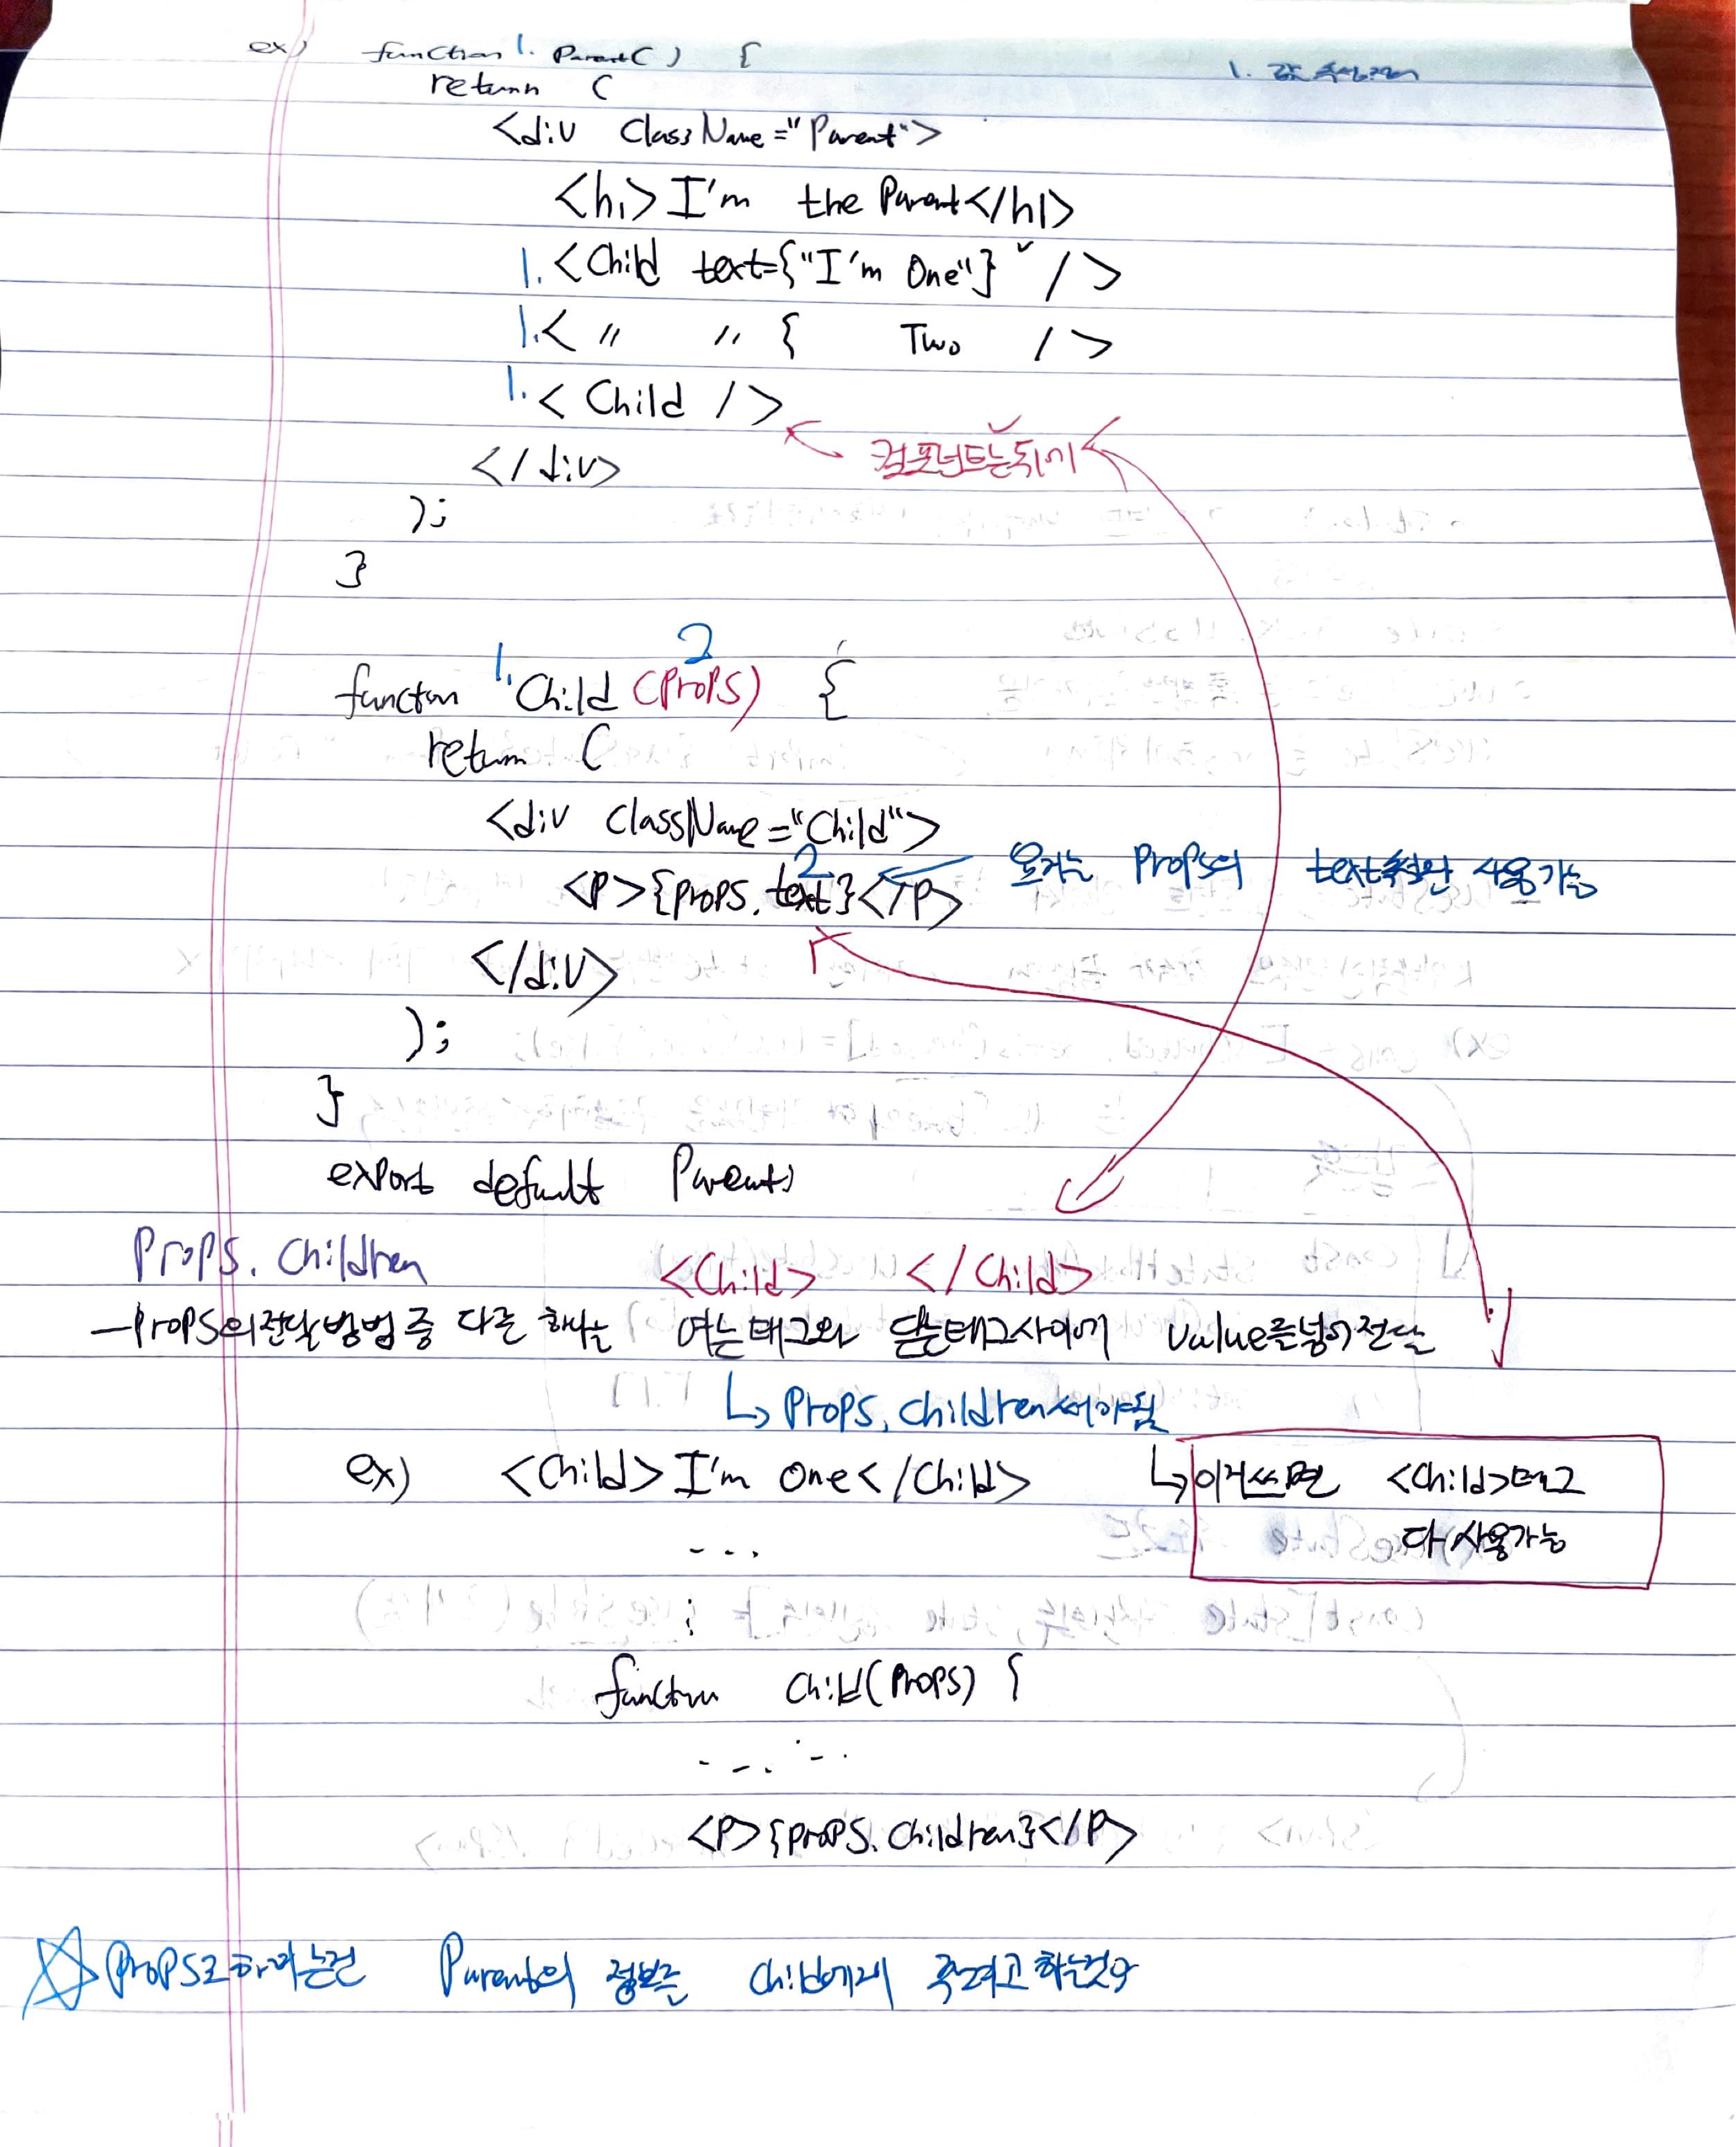 ex) function 1. Parent() {
1. 값
return (
<div ClassName="Parent">
<h1>I'm the Parent</h1>
1. <Child text={"I'm One"} />
1. < 〃 〃 { Two />
1. < Child />
컴포넌트는
</div>
);
}
2
function 1. Child (Props) {
return (
<div className="Child">
2
<P>{props.text}</P>
Props의 text 사용가능
</div>
);
}
export default Parent;
Props. Children
<Child> </Child>
-Props의 전달방법 중 다른 하나는 여는태그와 닫는태그사이에 Value를 넣어 전달
↳ Props. Children써야됨
ex) <Child>I'm One</Child>
↳이거쓰면 <Child>태그
다 사용가능
...
function Child(Props) {
<P>{props. Children}</P>
☆ Props로 하려는건 Parent의 정보를 Child에게 주려고 하는것